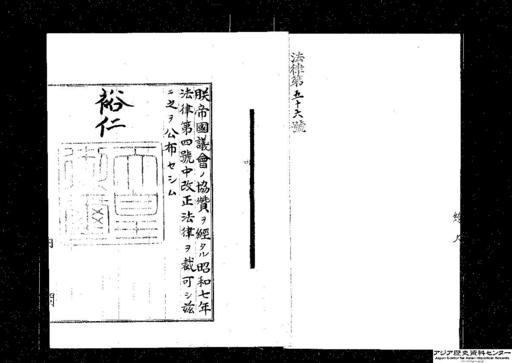 法律第五十六號
朕帝國議會ノ協贊ヲ經タル昭和七年
法律第四號中改正法律ヲ裁可シ茲
ニ之ヲ公布セシム
裕仁
内閣
アジア歴史資料センター
Japan Center for Asian Historical Records